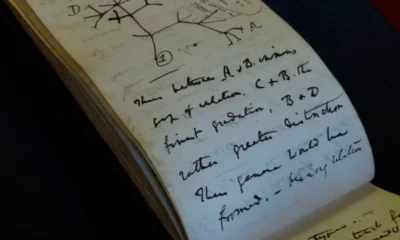 D
A
1
Thus between A & B. immens
gap of relation. C & B. the
finest gradation, B & D
rather greater distinction
Thus genera would be
formed. — bearing relation